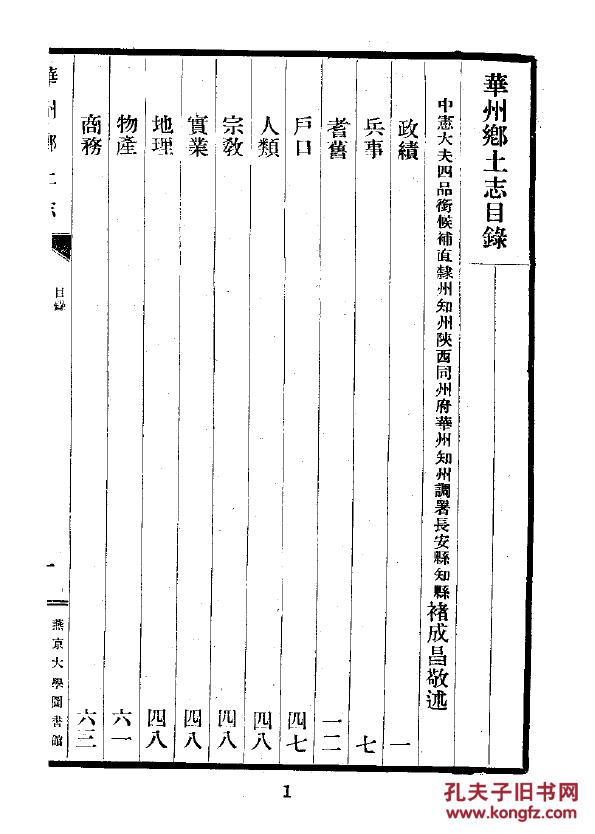 華州鄉土志目錄
中憲大夫四品銜候補直隸州知州陝西同州府華州知州調署長安縣知縣褚成昌敬述
政績 一
兵事 七
耆舊 一二
戶口 四七
人類 四八
宗教 四八
實業 四八
地理 四八
物產 六一
商務 六三
華州鄉土志
目錄
一
燕京大學圖書館
1
孔夫子旧书网
www.kongfz.com